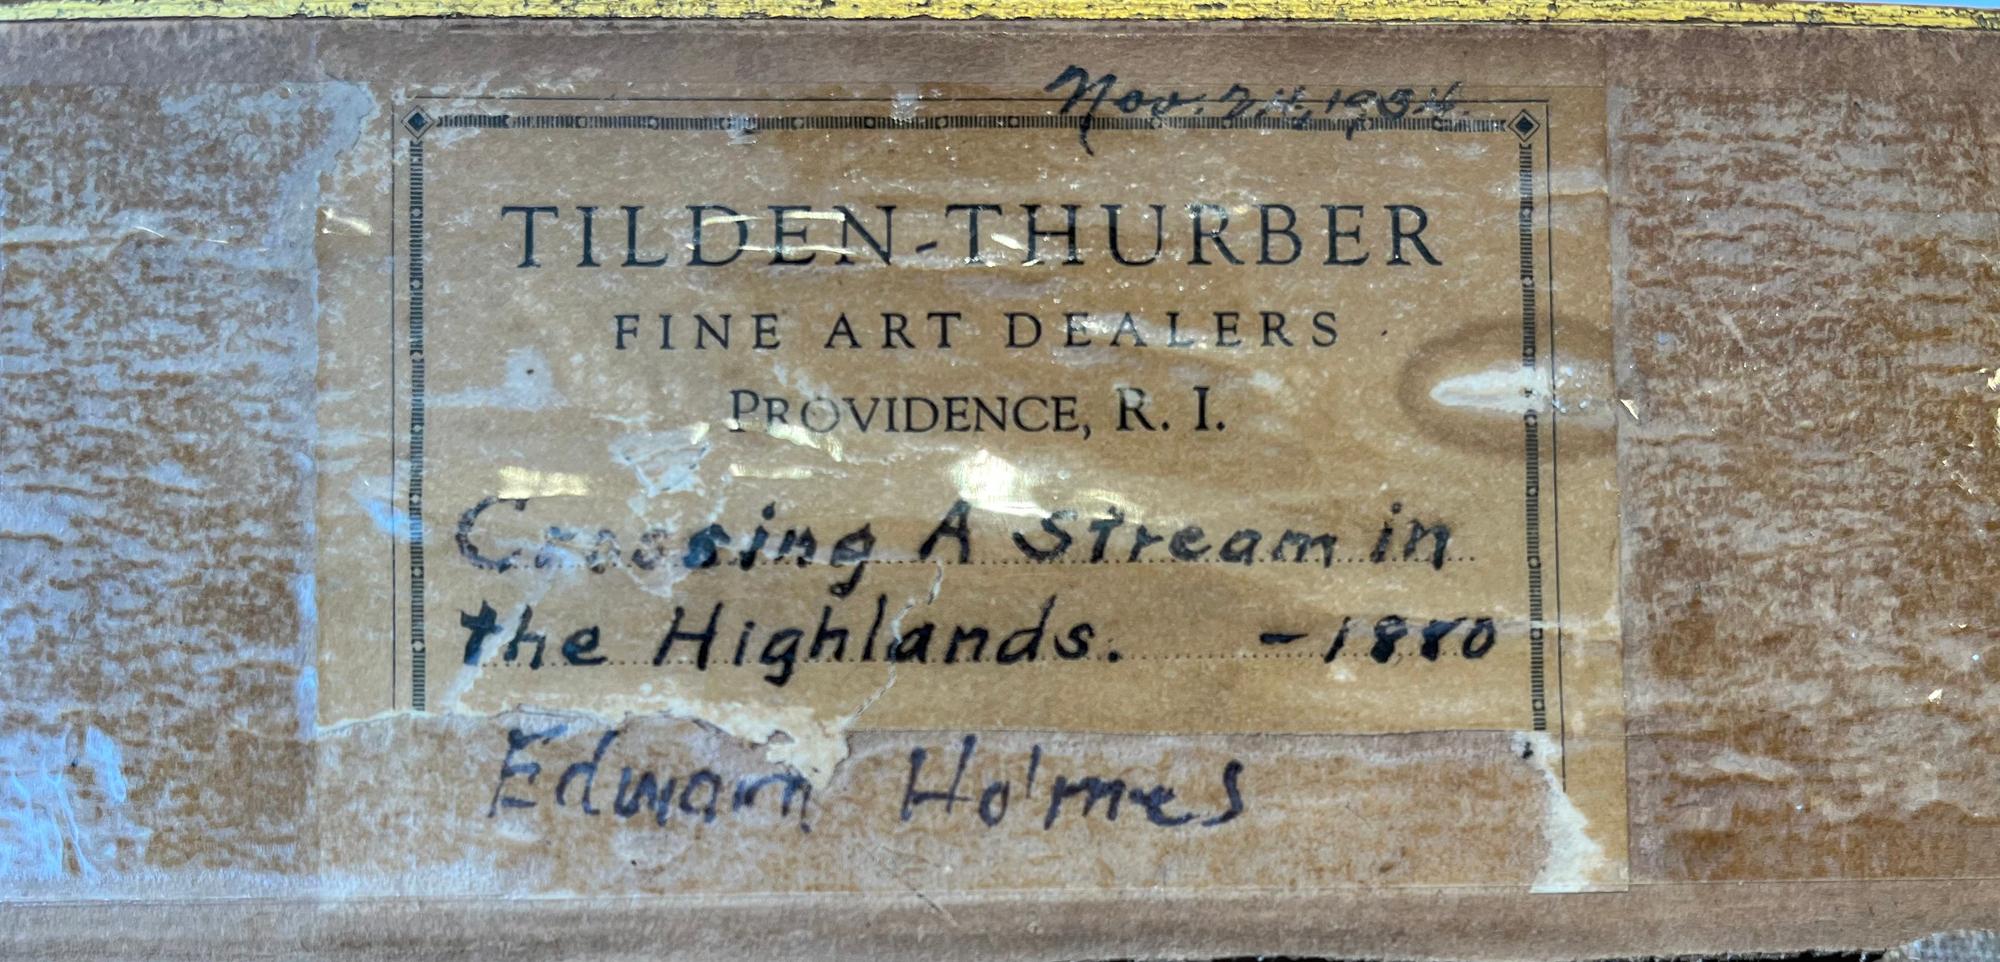 Nov. 24, 1934.
TILDEN-THURBER
FINE ART DEALERS
PROVIDENCE, R. I.
Crossing A Stream in
the Highlands. -1880
Edward Holmes